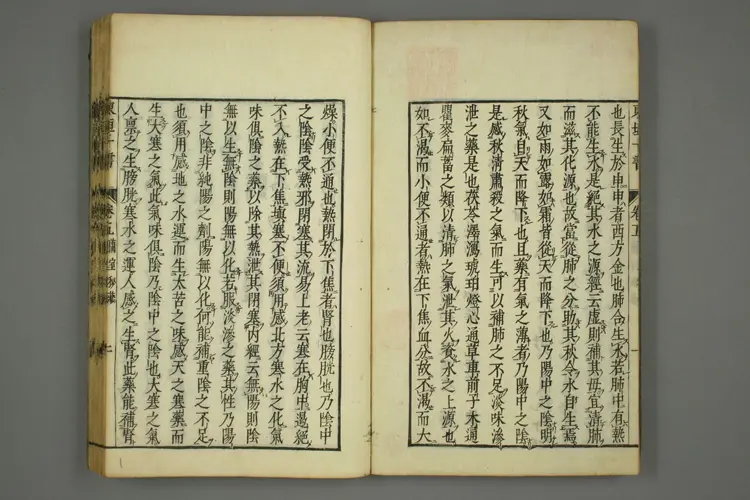 也長生於申申者西方金也肺合生水若肺中有熱
不能生水是絕其水之源經云虛則補其母宜清肺
而滋其化源也故當從肺之分助其秋令水自生焉
又如雨如露如霜皆從天而降下也乃陽中之陰明
秋氣自天而降下也且藥有氣之薄者乃陽中之陰
是感秋清肅殺之氣而生可以補肺之不足淡味滲
泄之藥是也茯苓澤瀉琥珀燈心通草車前子木通
瞿麥萹蓄之類以清肺之氣泄其火資水之上源也
如不渴而小便不通者熱在下焦血分故不渴而大
燥小便不通也熱閉於下焦者腎也膀胱也乃陰中
之陰陰受熱邪閉塞其流易上老云寒在胸中遏絕
不入熱在下焦填塞不便須用感北方寒水之化氣
味俱陰之藥以除其熱泄其閉塞內經云無陽則陰
無以生無陰則陽無以化若服淡滲之藥其性乃陽
中之陰非純陽之劑陽無以化何能補重陰之不足
也須用感地之水運而生太苦之味感天之寒藥而
生大寒之氣此氣味俱陰乃陰中之陰也大寒之氣
人稟之生膀胱寒水之運人感之生腎此藥能補腎
卷五